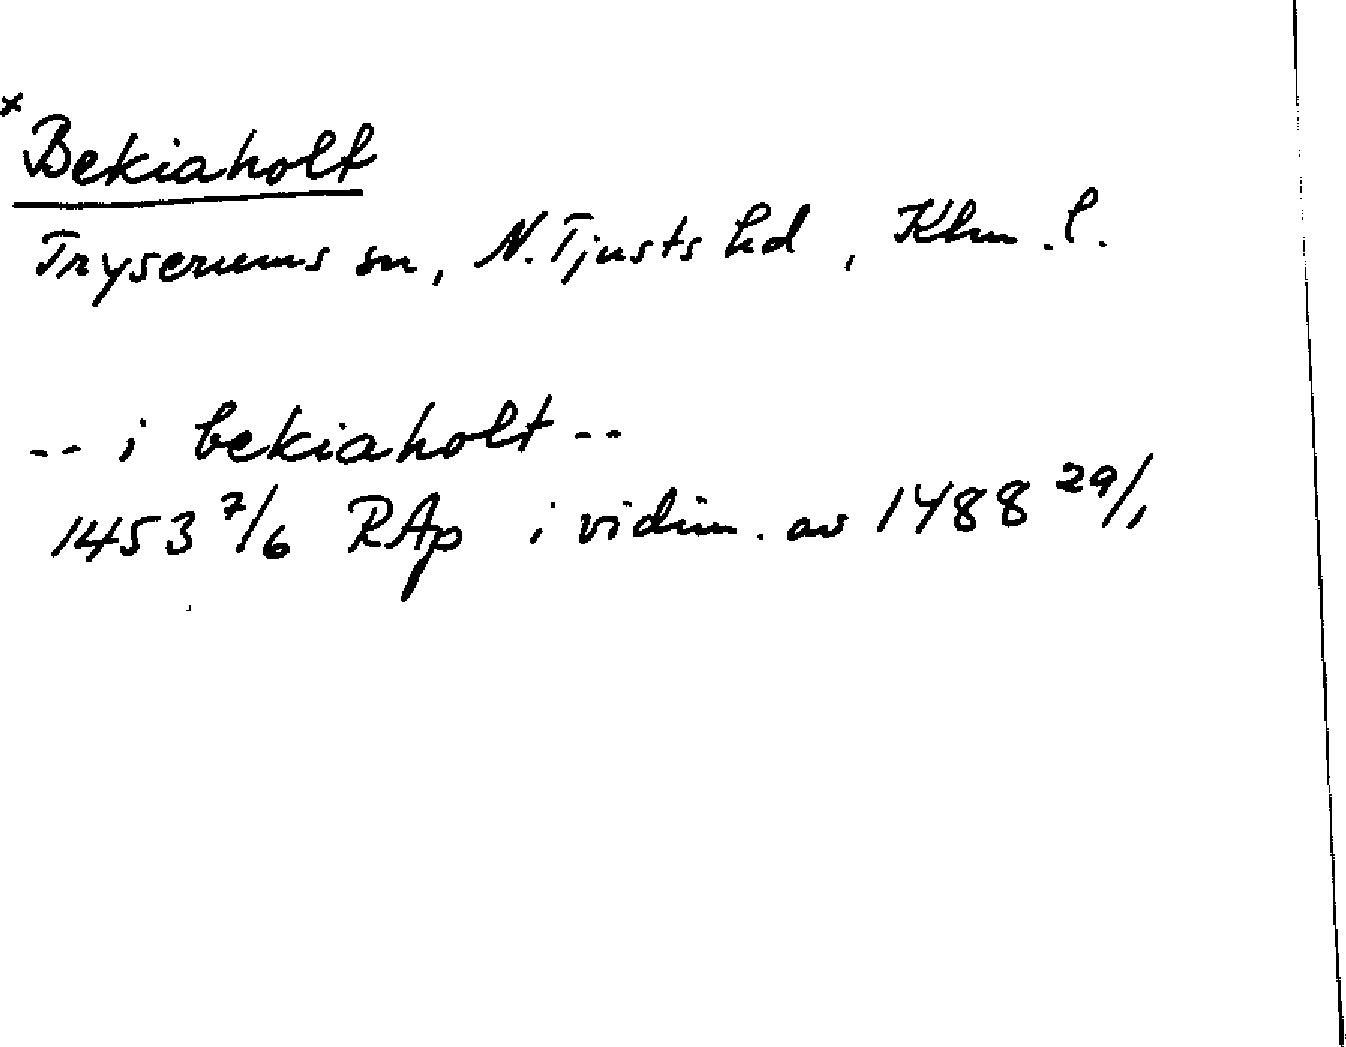 ×Bekiaholt
Tryserums sn, N. Tjusts hd, Klm. l.
-- i bekiaholt --
1453 7/6 RAp i vidim. av 1488 29/1